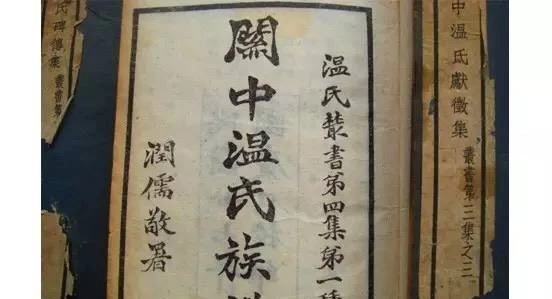 中温氏獻徵集
叢書第三集之三
温氏叢書第四集第一種
關中温氏族
潤儒敬署
氏碑傳集
叢書第